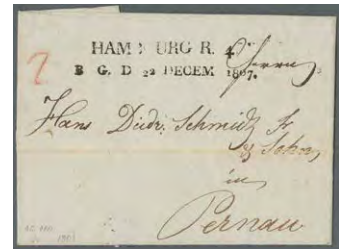 HAMBURG R. 4 Herrn
B G. D 22 DECEM 1807.
Hans Diedr. Schmidt Sr
& Sohn,
in
Pernau.